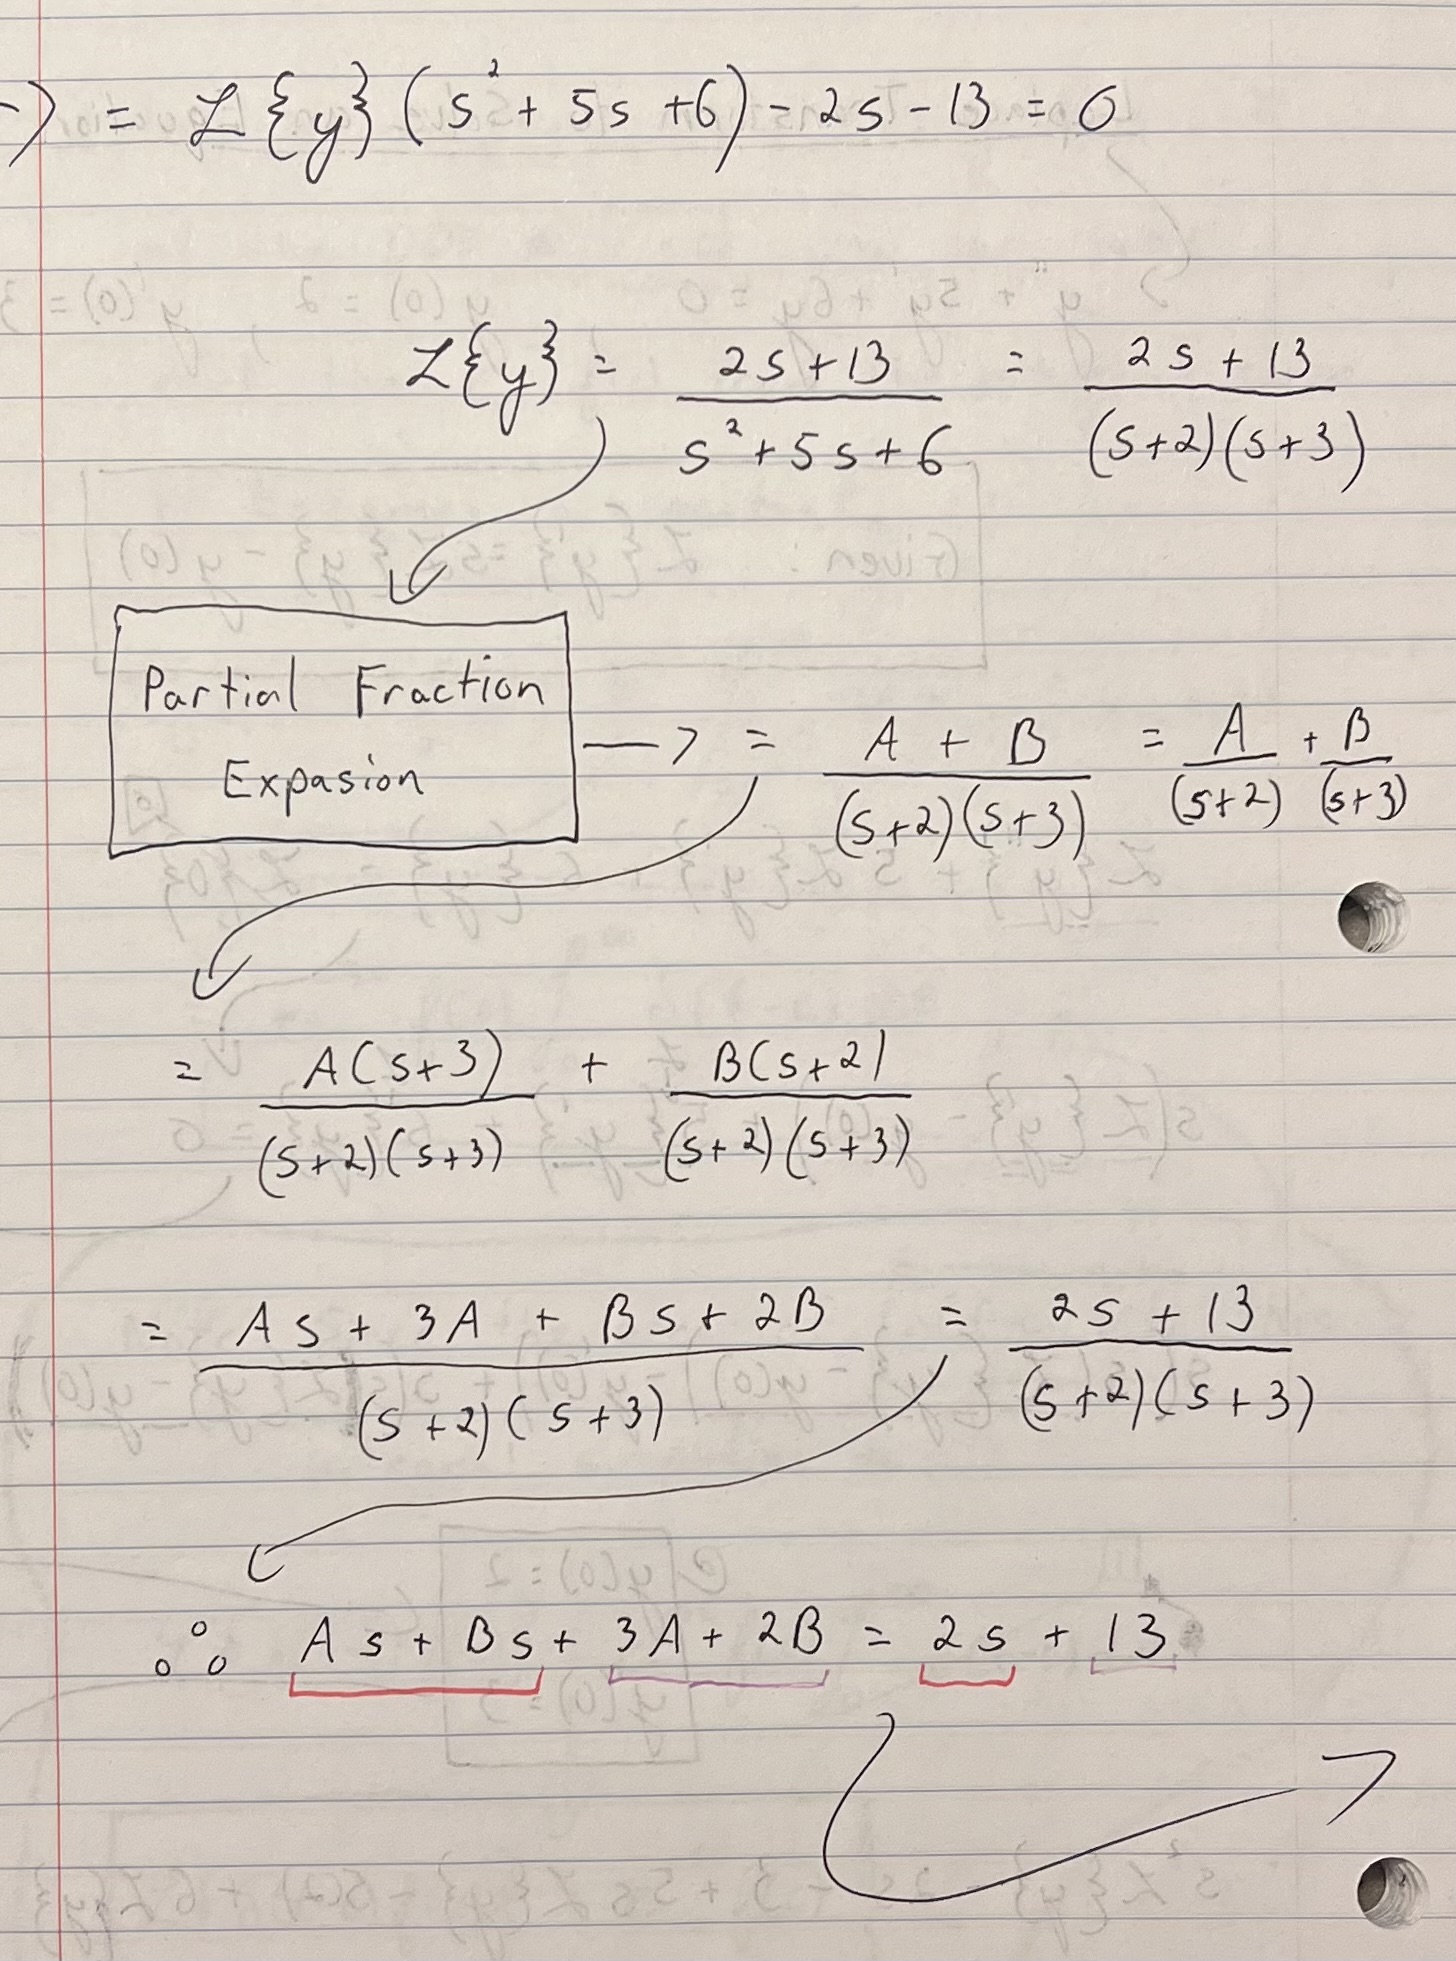 -> = ℒ{y}(s² + 5s + 6) - 2s - 13 = 0
ℒ{y} = (2s + 13)/(s² + 5s + 6) = (2s + 13)/((s+2)(s+3))
Partial Fraction
Expasion
-> = (A + B)/((s+2)(s+3)) = A/(s+2) + B/(s+3)
= A(s+3)/((s+2)(s+3)) + B(s+2)/((s+2)(s+3))
= (As + 3A + Bs + 2B)/((s+2)(s+3)) = (2s + 13)/((s+2)(s+3))
∴ As + Bs + 3A + 2B = 2s + 13